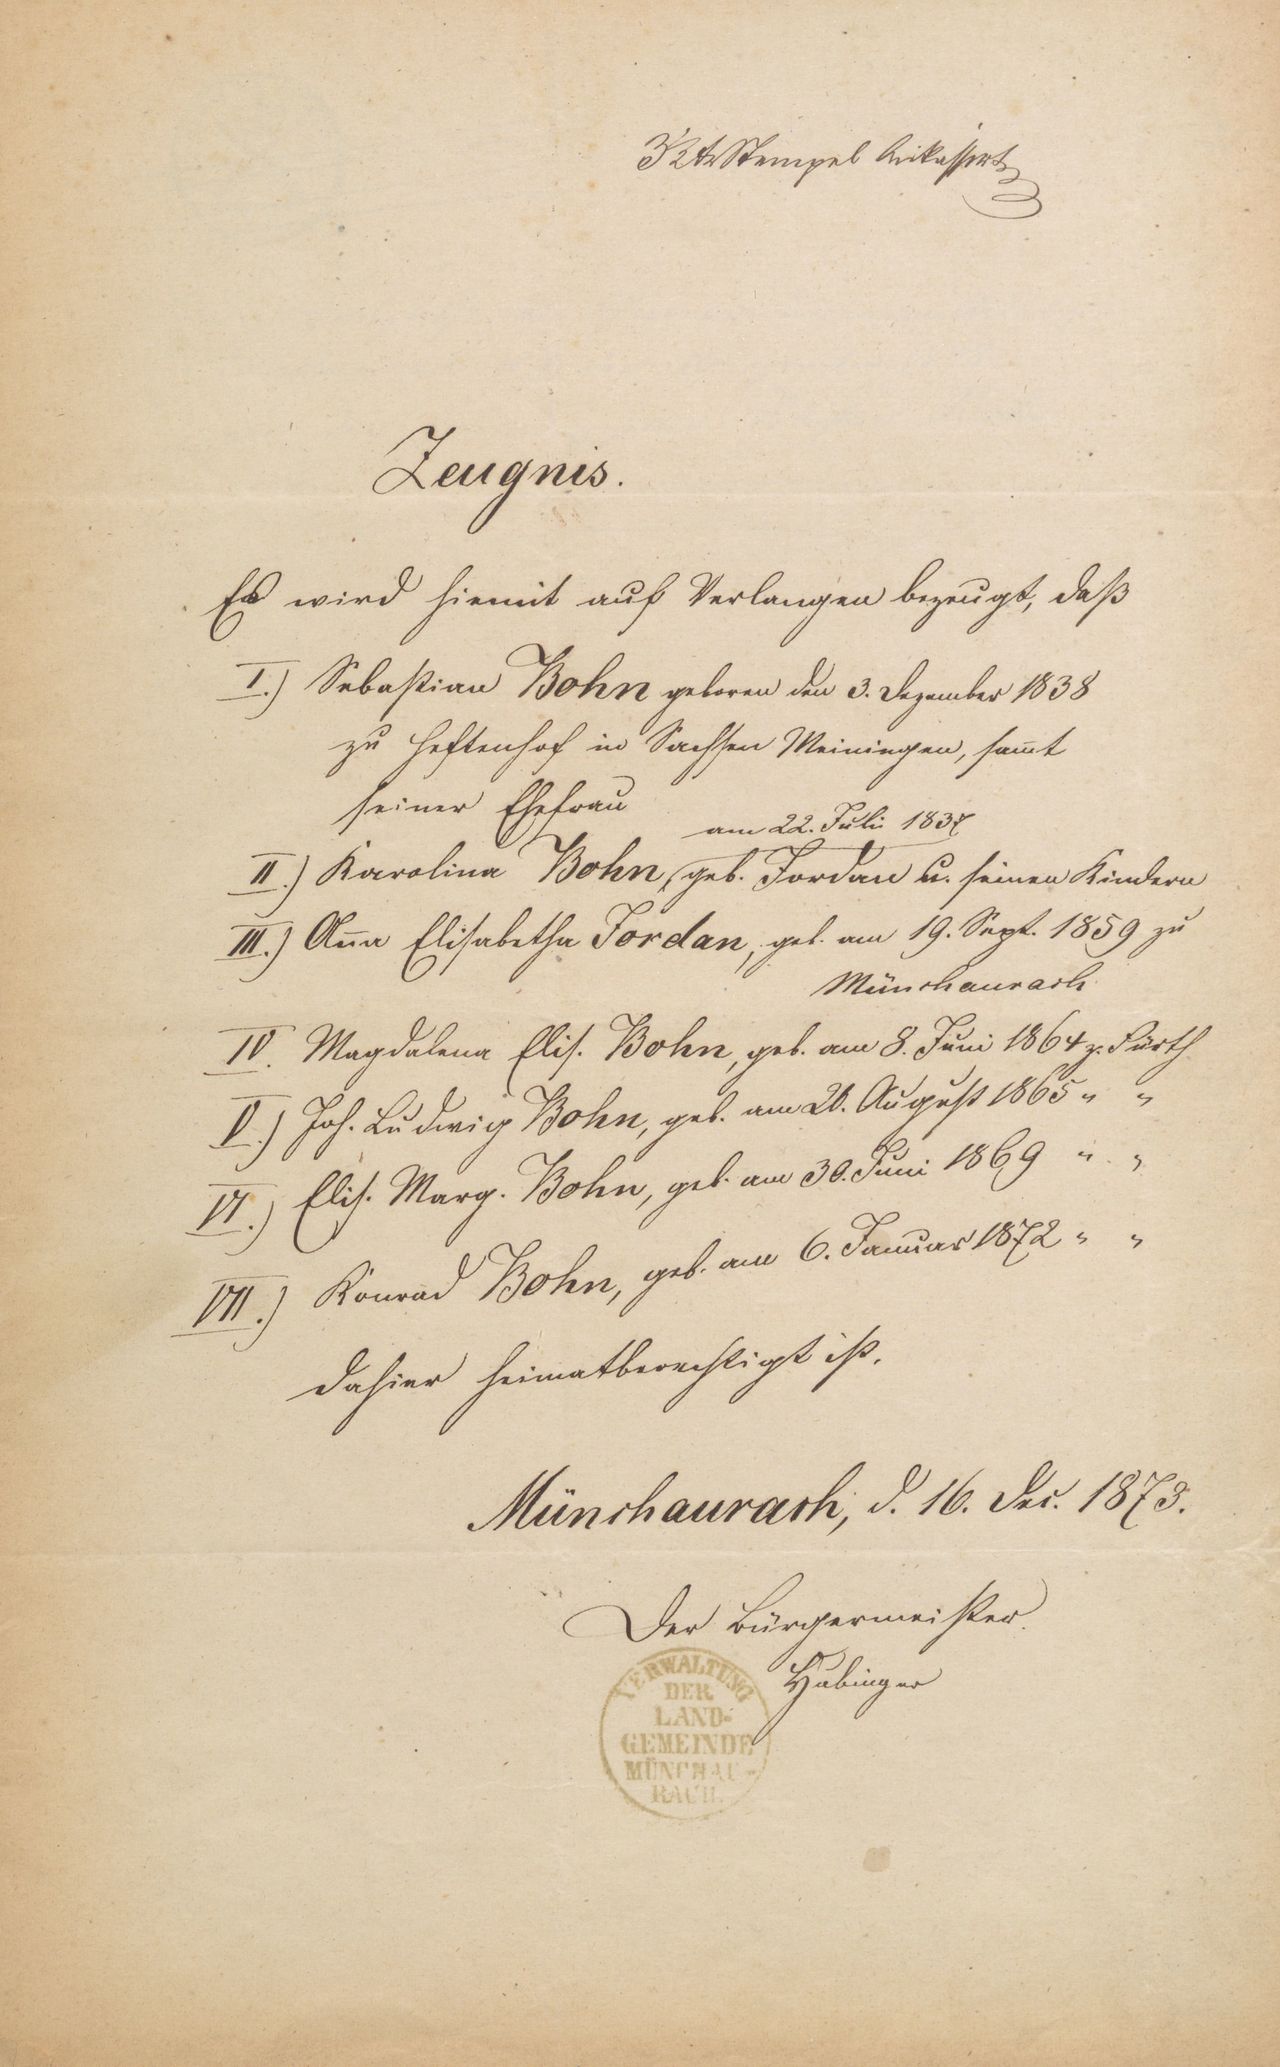 3 Kr Stempel
Zeugnis.
Es wird hiemit auf Verlangen bezeugt, daß
I.) Sebastian Bohn geboren den 3. Dezember 1838
zu Heftenhof in Sachsen Meiningen, sam̄t
seiner Ehefrau
am 22. Juli 1837
II.) Karolina Bohn, geb. Jordan u. seinen Kindern
III.) An̄a Elisabetha Jordan, geb. am 19. Sept. 1859 zu
Münchaurach
IV. Magdalena Elis. Bohn, geb. am 8. Juni 1864 z. Fürth
V.) Joh. Ludwig Bohn, geb. am August 1865 " "
VI.) Elis. Marg. Bohn, geb. am 30. Juni 1869 " "
VII.) Konrad Bohn, geb. am 6. Januar 1872 " "
dahier heimatberechtigt ist.
Münchaurach, d. 16. Dec. 1873.
Der Bürgermeister.
Hubinger
VERWALTUNG
DER
LAND-
GEMEINDE
MÜNCHAU-
RACH.